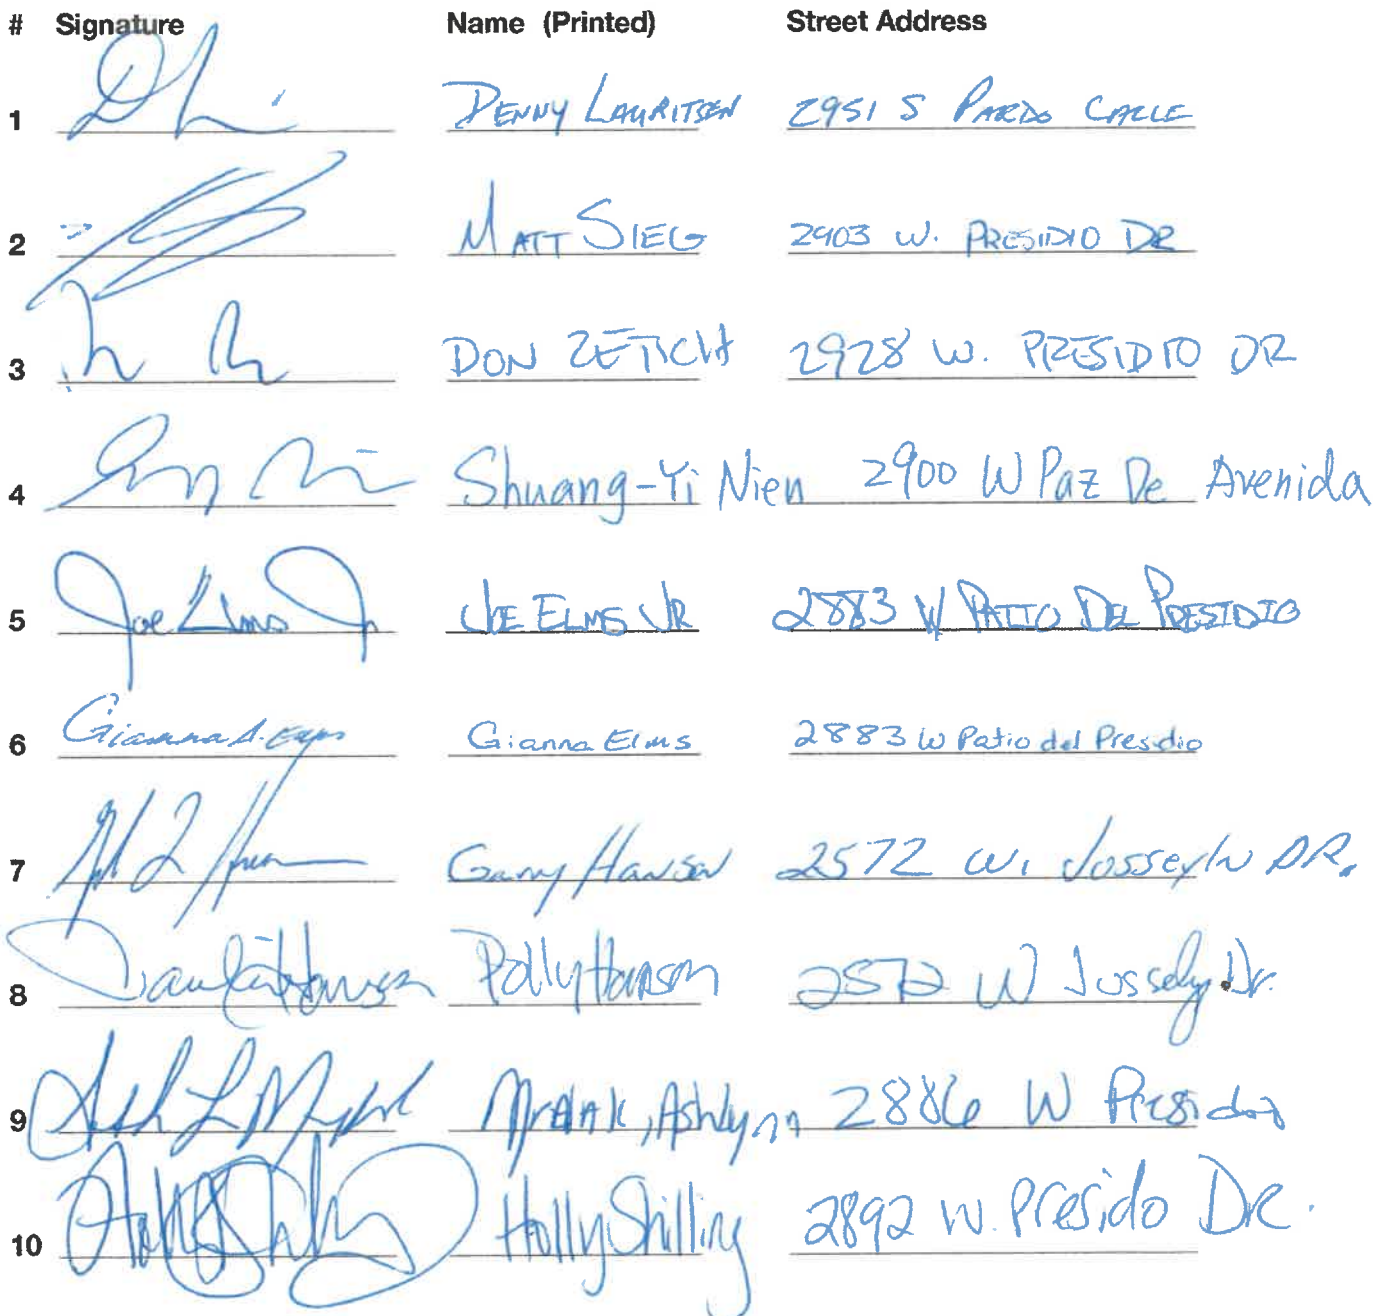 # Signature Name (Printed) Street Address
1 DENNY LAURITSEN 2951 S PARDO CALLE
2 MATT SIEG 2903 W. PRESIDIO DR
3 DON 2928 W. PRESIDIO DR
4 Shuang-Yi Nien 2900 W Paz De Avenida
5 Joe Elms Jr JOE ELMS JR 2883 W PATIO DEL PRESIDIO
6 Gianna A. Elms Gianna Elms 2883 W Patio del Presdio
7 Gary Hanson 2572 W. Josseyln DR.
8 Polly Hanson 2572 W Jossely Dr.
9 Ashlynn 2886 W Presidio
10 Holly Shilling 2892 W. Presido DR.